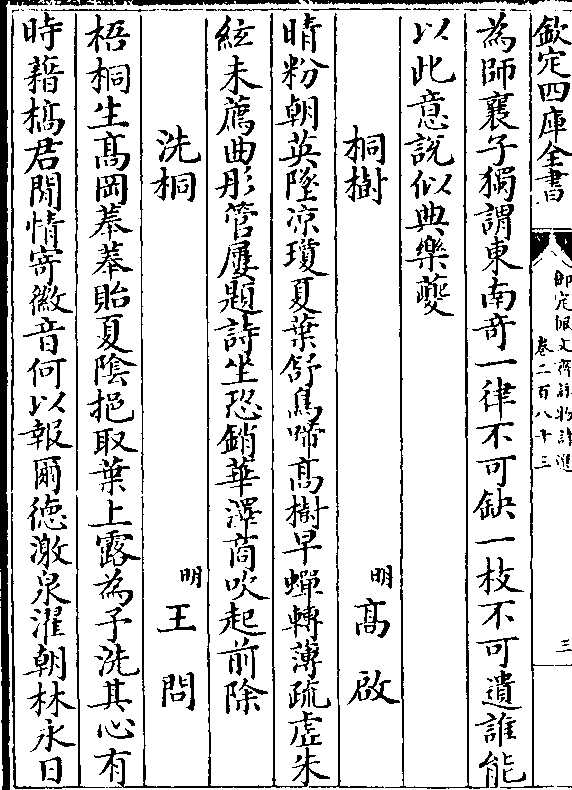 欽定四庫全書
御定佩文齋詠物詩選
卷二百八十三
三
為師襄子獨謂東南竒一律不可缺一枝不可遺誰能
以此意說似典樂夔
桐樹
明 髙啟
晴粉朝英墜凉瓊夏葉舒鳥啼髙樹早蟬轉薄疏虛朱
絃未薦曲彤管屢題詩坐恐銷華澤商吹起前除
洗桐
明 王問
梧桐生髙岡菶菶貽夏陰挹取葉上露為予洗其心有
時藉槁君閒情寄徽音何以報爾德激泉濯朝林永日